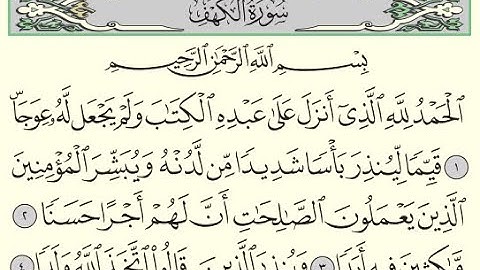 سُورَةُ الكَهۡفِ
بِسۡمِ ٱللَّهِ ٱلرَّحۡمَٰنِ ٱلرَّحِيمِ
ٱلۡحَمۡدُ لِلَّهِ ٱلَّذِيٓ أَنزَلَ عَلَىٰ عَبۡدِهِ ٱلۡكِتَٰبَ وَلَمۡ يَجۡعَل لَّهُۥ عِوَجَاۜ
١ قَيِّمٗا لِّيُنذِرَ بَأۡسٗا شَدِيدٗا مِّن لَّدُنۡهُ وَيُبَشِّرَ ٱلۡمُؤۡمِنِينَ
ٱلَّذِينَ يَعۡمَلُونَ ٱلصَّٰلِحَٰتِ أَنَّ لَهُمۡ أَجۡرًا حَسَنٗا ٢
مَّٰكِثِينَ فِيهِ أَبَدٗا ٣ وَيُنذِرَ ٱلَّذِينَ قَالُواْ ٱتَّخَذَ ٱللَّهُ وَلَدٗا ٤